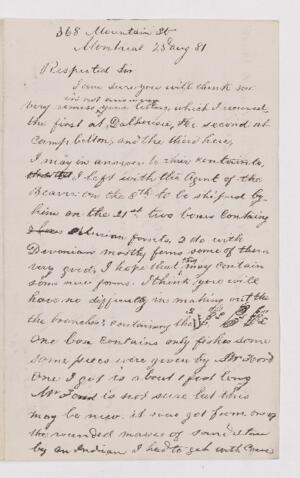 368 Mountain St
Montreal 23d Aug 81
Respected Sir
I am sure you will think me
very remiss in not answering your letters, which I received
the first at Dalhousie, the second at
Campbelton, and the third here,
I may in answer to their contents,
I left with the Agent of the
Beaver on the 8th to be shiped by
him on the 21st two boxes containg
Silurian fossils, 2 do with
Devonian mostly ferns some of them
very good, I hope that they may contain
some new forms. I think you will
have no difficulty in making out the
the branches containing the
One box contains only fishes some
some pieces were given by Mr Foord
One I got is about 1 foot long
Mr Foord is not sure but this
may be new. it was got from one of
the rounded masses of
by an Indian I had to get with Cove